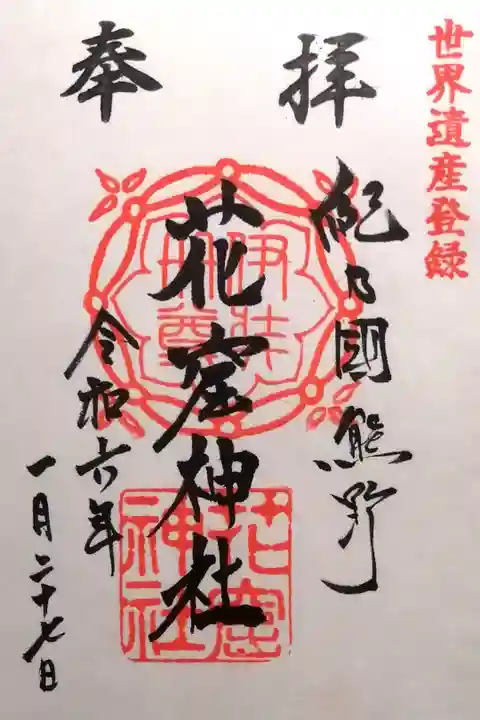 世界遺産登録
奉拝
紀乃國熊野
花窟神社
伊弉冊尊
花窟神社
令和六年
一月二十七日